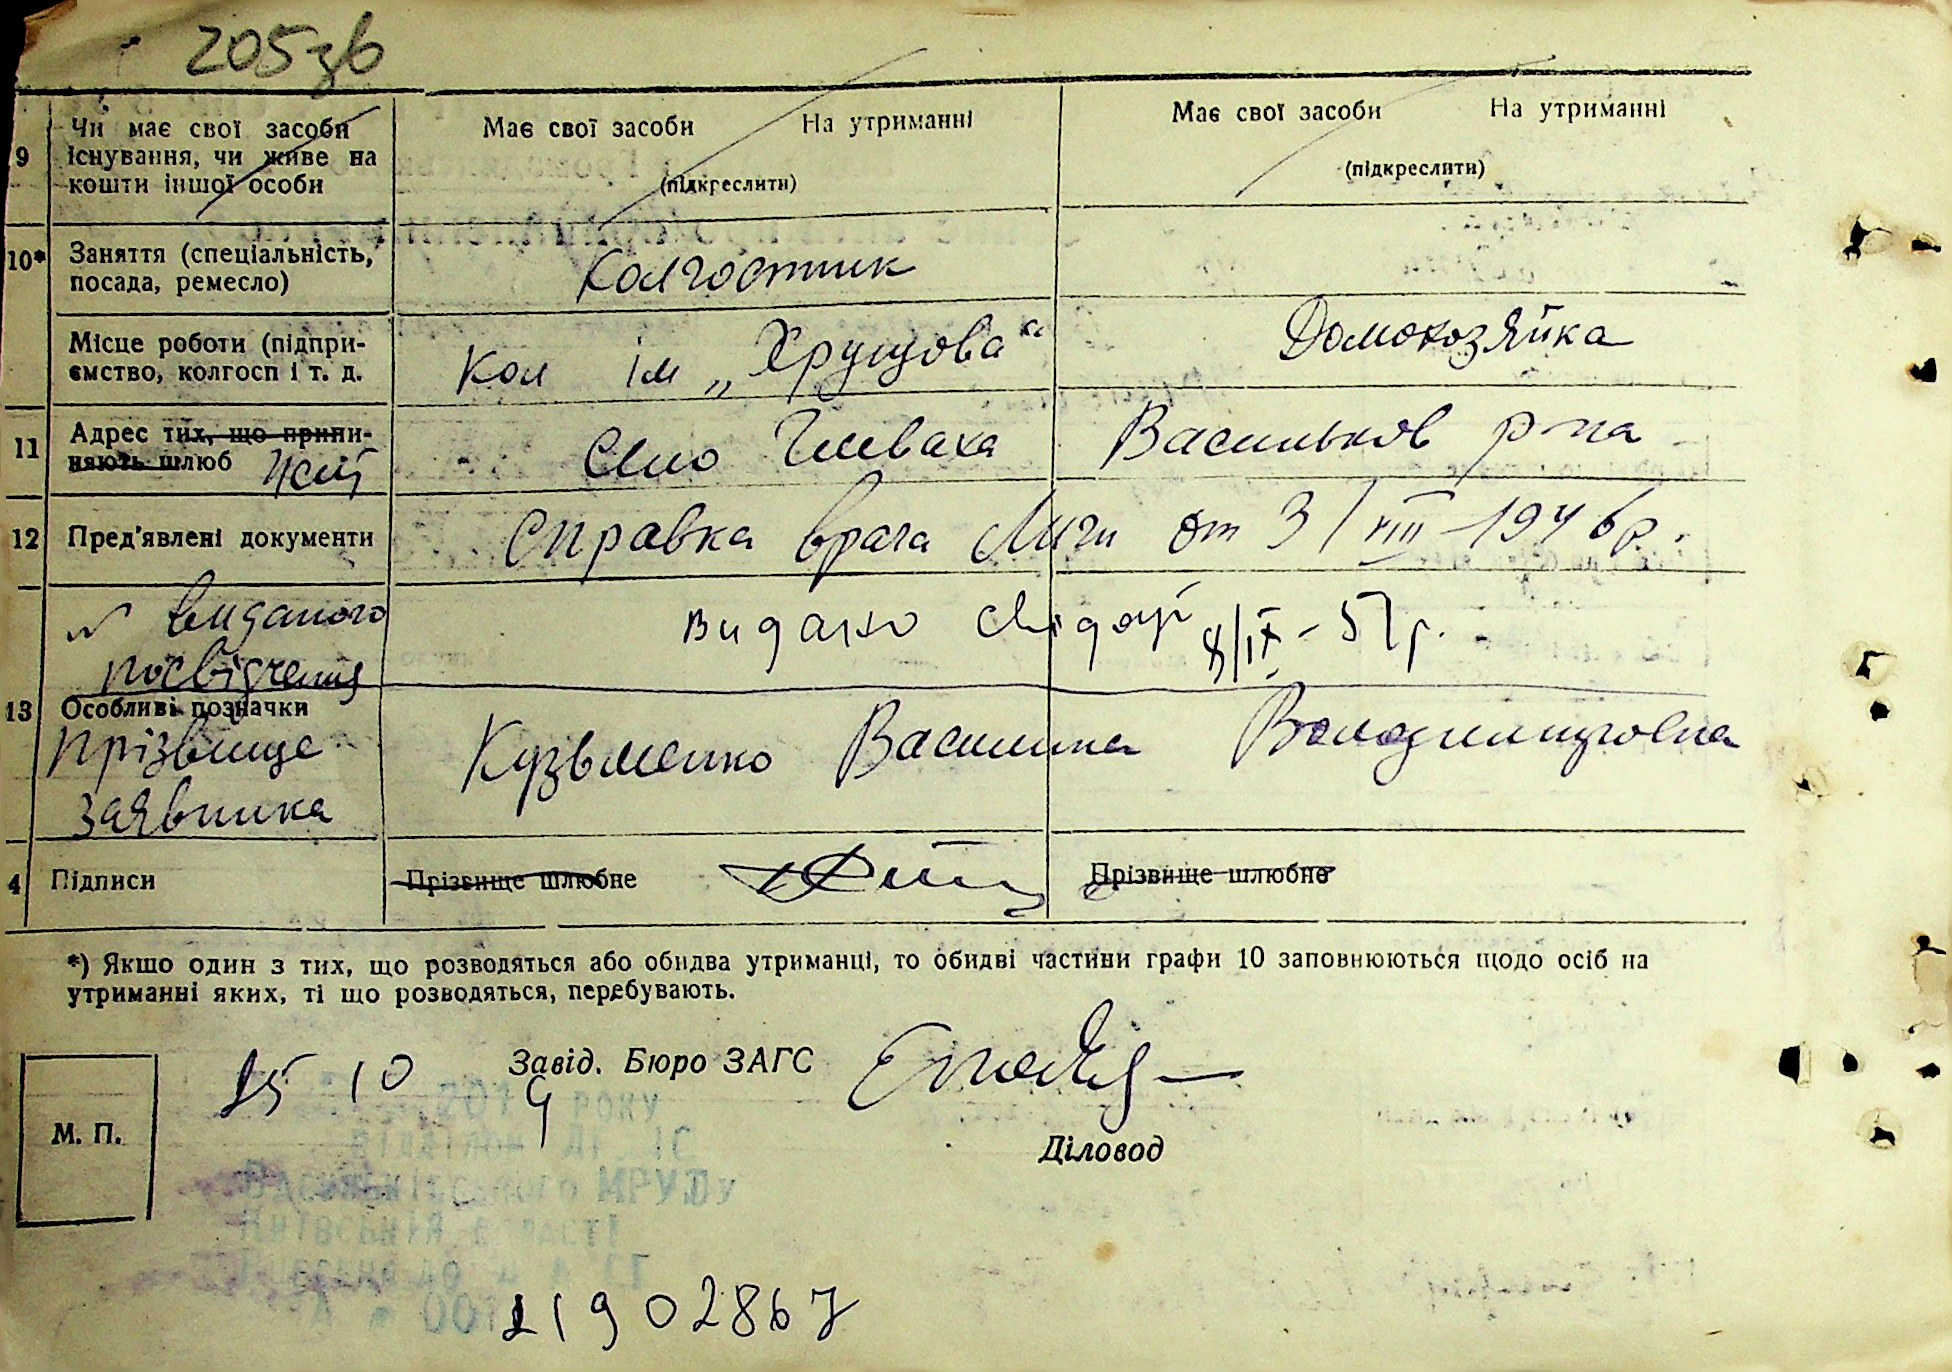 205зв
9 Чи має свої засоби існування, чи живе на кошти іншої особи
Має свої засоби На утриманні
(підкреслити)
Має свої засоби На утриманні
(підкреслити)
10* Заняття (спеціальність, посада, ремесло)
Колгоспник
Місце роботи (підпри-
ємство, колгосп і т. д.
Кол ім „Хрущова“
Домохозяйка
11 Адрес тих, що припи-
няють шлюб
Село Глеваха Васильков р-на
12 Пред'явлені документи
Справка врача от 3/VIII-1946р.
№ виданого
посвідчення
видано 8/IX-57р.
13 Особливі позначки
Прізвище
заявника
Кузьменко Василина Володимировна
4 Підписи
Прізвище шлюбне
Прізвище шлюбне
*) Якщо один з тих, що розводяться або обидва утриманці, то обидві частини графи 10 заповнюються щодо осіб на
утриманні яких, ті що розводяться, перебувають.
Завід. Бюро ЗАГС
М. П.
Діловод
РОКУ
МРУЮ
21902867